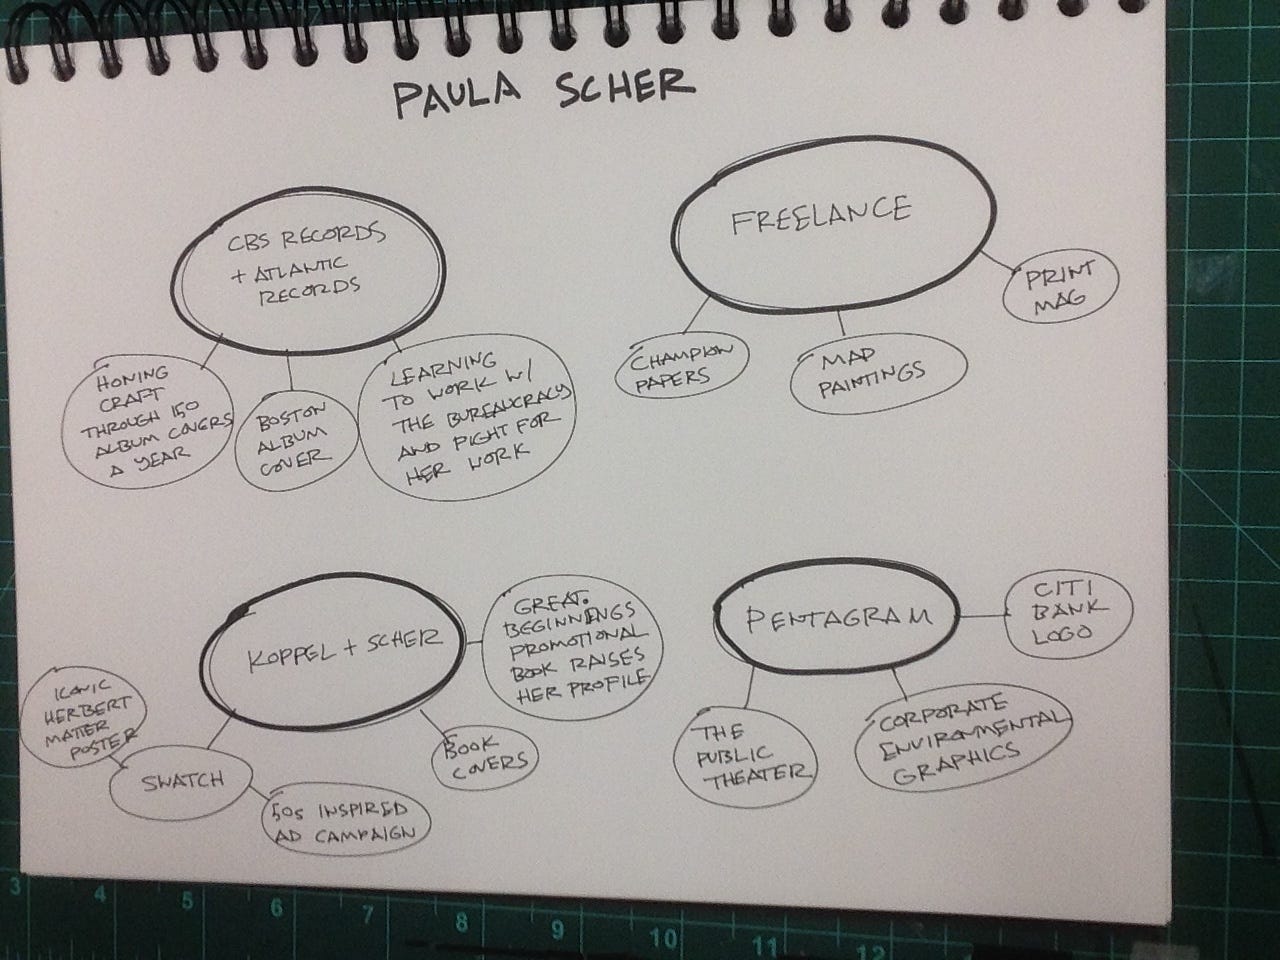 PAULA SCHER
CBS RECORDS
+ ATLANTIC
RECORDS
HONING
CRAFT
THROUGH 150
ALBUM COVERS
A YEAR
BOSTON
ALBUM
COVER
LEARNING
TO WORK W/
THE BUREAUCRACY
AND FIGHT FOR
HER WORK
FREELANCE
PRINT
MAG
CHAMPION
PAPERS
MAP
PAINTINGS
KOPPEL + SCHER
GREAT
BEGINNINGS
PROMOTIONAL
BOOK RAISES
HER PROFILE
ICONIC
HERBERT
MATTER
POSTER
SWATCH
50s INSPIRED
AD CAMPAIGN
BOOK
COVERS
PENTAGRAM
CITI
BANK
LOGO
THE
PUBLIC
THEATER
CORPORATE
ENVIRONMENTAL
GRAPHICS
3 4 5 6 7 8 9 10 11 12